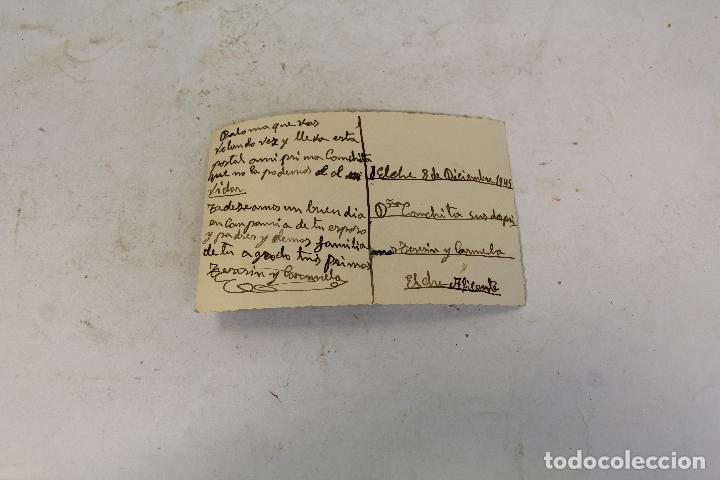 Paloma que vas
volando vez y lleva esta
postal a mi prima Conchita
que no la podemos ol
vidar
en Companía de tu esposo
y padres y demas familia
de tu agrado tus primas
Tererin y Carmela
Elche 8 de Diciembre 1945
Conchita sus dos pri
mas Tererin y Carmela
Elche Alicante
todocoleccion.net